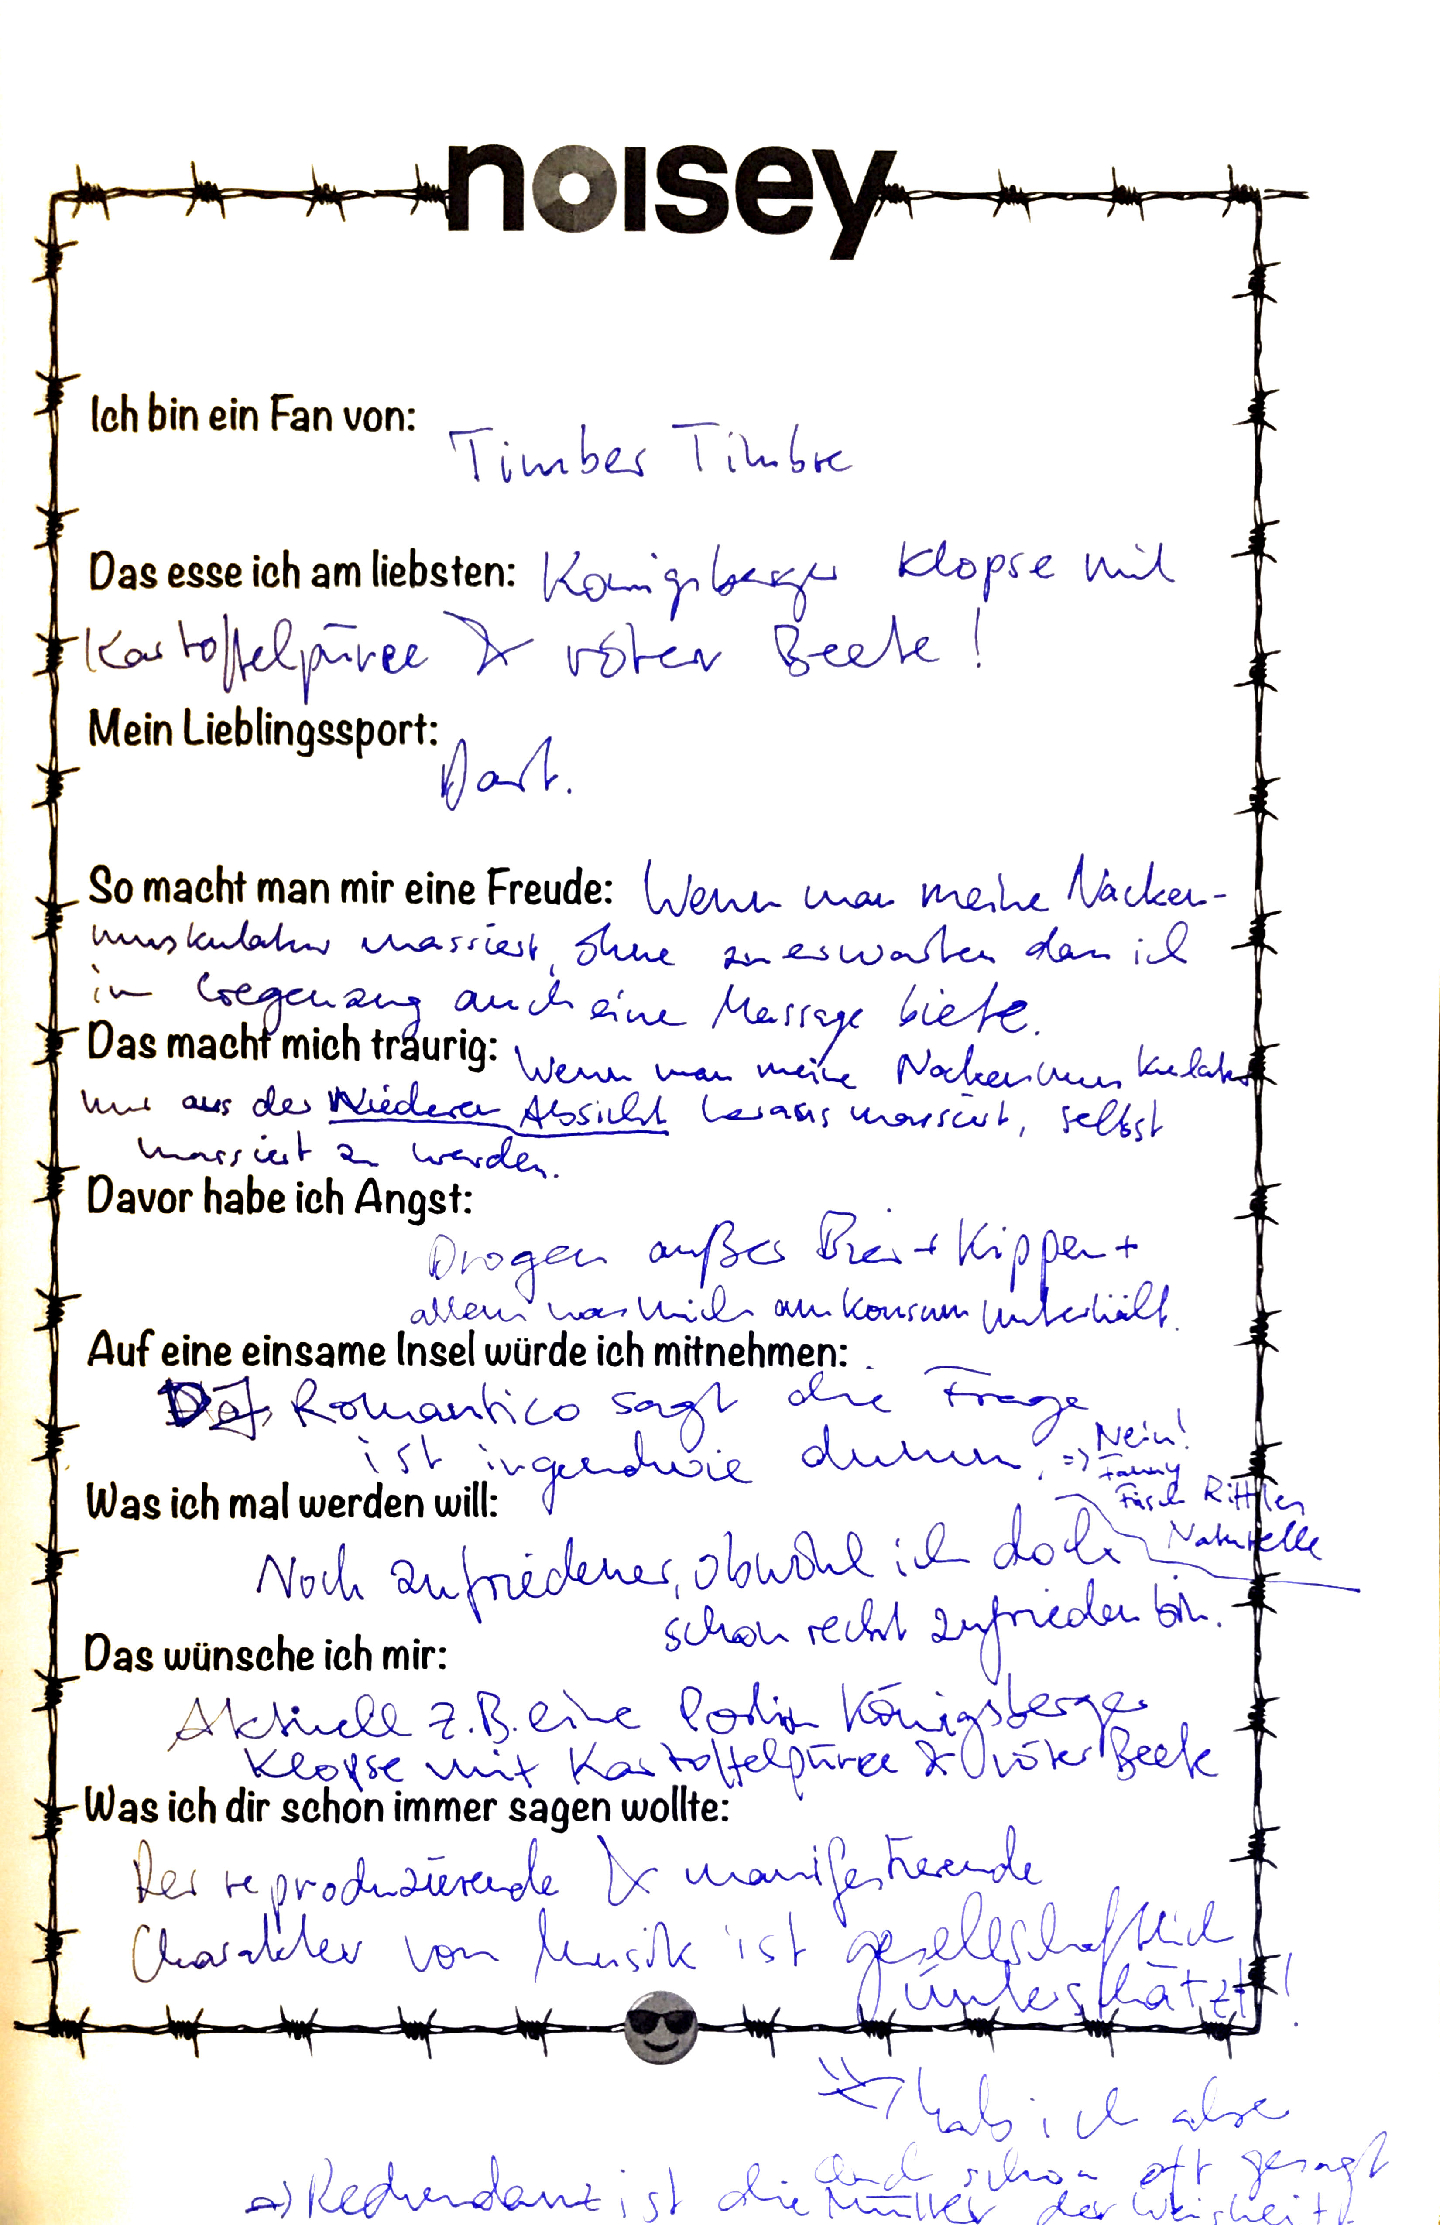 noisey
Ich bin ein Fan von:
Timber Timbre
Das esse ich am liebsten: Königsberger Klopse mit
Kartoffelpüree & roter Beete!
Mein Lieblingssport:
Dart.
So macht man mir eine Freude: Wenn man meine Nacken-
muskulatur massiert, ohne zu erwarten dass ich
im Gegenzug auch eine Massage biete.
Das macht mich traurig: Wenn man meine Nackenmuskulatur
nur aus der Niederen Absicht heraus massiert, selbst
massiert zu werden.
Davor habe ich Angst:
Drogen außer Bier + Kippen +
allem was mich am Konsum unterhält.
Auf eine einsame Insel würde ich mitnehmen:
Romantico sagt die Frage
ist irgendwie dumm. => Nein!
Fanny
Fisch Rittler
Naturelle
Was ich mal werden will:
Noch zufriedener, obwohl ich doch
schon recht zufrieden bin.
Das wünsche ich mir:
Aktuell z.B. eine Portion Königsberger
Klopse mit Kartoffelpüree & roter Beete
Was ich dir schon immer sagen wollte:
Der reproduzierende & manifestierende
Charakter von Musik ist gesellschaftlich
unterschätzt!
=> hab ich aber
auch schon oft gesagt
=> Redundanz ist die Mutter der Weisheit